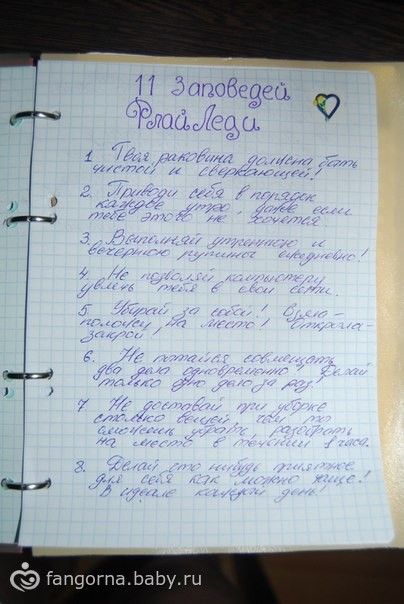 11 Заповедей
ФлайЛеди
1. Твоя раковина должна быть
чистой и сверкающей!
2. Приводи себя в порядок
каждое утро, даже если
тебе этого не хочется.
3. Выполняй утреннюю и
вечернюю рутины ежедневно!
4. Не позволяй компьютеру
увлечь тебя в свои сети.
5. Убирай за собой! Взяла-
положи на место! Открыла-
закрой
6. Не пытайся совмещать
два дела одновременно! Делай
только одно дело за раз!
7 Не доставай при уборке
столько вещей, чем то
сможешь убрать, разобрать
на место в течении 1 часа.
8. Делай что нибудь приятное
для себя как можно чаще!
В идеале каждый день!
fangorna.baby.ru